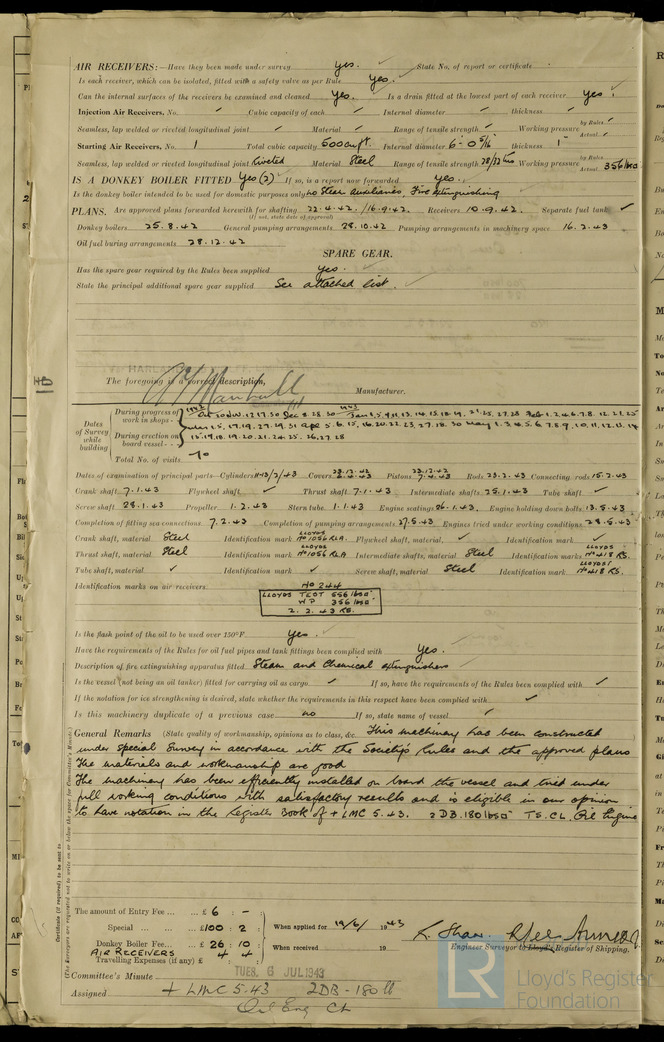 AIR RECEIVERS:—Have they been made under survey yes. ✓ State No. of report or certificate
Is each receiver, which can be isolated, fitted with a safety valve as per Rule yes. ✓
Can the internal surfaces of the receivers be examined and cleaned yes. Is a drain fitted at the lowest part of each receiver yes. ✓
Injection Air Receivers, No. ✓ Cubic capacity of each ✓ Internal diameter ✓ thickness ✓
Seamless, lap welded or riveted longitudinal joint ✓ Material ✓ Range of tensile strength ✓ Working pressure by Rules ✓ Actual ✓
Starting Air Receivers, No. 1 Total cubic capacity 500 cu ft. Internal diameter 6'-0 5/16" thickness 1"
Seamless, lap welded or riveted longitudinal joint Riveted Material Steel Range of tensile strength 28/32 tons Working pressure by Rules Actual 356 lbs
IS A DONKEY BOILER FITTED Yes (2) If so, is a report now forwarded yes.
Is the donkey boiler intended to be used for domestic purposes only no Steer auxiliaries, Fire extinguishing
PLANS. Are approved plans forwarded herewith for shafting 22.4.42. /16.9.42. Receivers 10.9.42. Separate fuel tanks ✓
(If not, state date of approval)
Donkey boilers 25.8.42 General pumping arrangements 28.10.42 Pumping arrangements in machinery space 16.2.43
Oil fuel burning arrangements 28.12.42
SPARE GEAR.
Has the spare gear required by the Rules been supplied yes.
State the principal additional spare gear supplied See attached list.
The foregoing is a correct description,
Manufacturer.
Dates of Survey while building
During progress of work in shops - -
During erection on board vessel - - -
15.17.18.19.20.21.24.25.26.27.28
Total No. of visits 70
Dates of examination of principal parts—Cylinders Covers Pistons Rods 23.2.43 Connecting rods 15.2.43
Crank shaft 7.1.43 Flywheel shaft ✓ Thrust shaft 7.1.43 Intermediate shafts 25.1.43 Tube shaft ✓
Screw shaft 28.1.43 Propeller 1.2.43 Stern tube 1.1.43 Engine seatings 26.1.43. Engine holding down bolts 13.5.43
Completion of fitting sea connections 7.2.43 Completion of pumping arrangements 27.5.43 Engines tried under working conditions 28.5.43
Crank shaft, material Steel Identification mark LLOYDS No 1056 R.A. Flywheel shaft, material ✓ Identification mark ✓
Thrust shaft, material Steel Identification mark LLOYDS No 1056 R.A. Intermediate shafts, material Steel Identification marks LLOYDS No 418 RS.
Tube shaft, material ✓ Identification mark ✓ Screw shaft, material Steel Identification mark LLOYDS No 418 RS.
Identification marks on air receivers No 244
LLOYDS TEST 556 lbs
WP 356 lbs
2.2.43 RS.
Is the flash point of the oil to be used over 150°F. yes.
Have the requirements of the Rules for oil fuel pipes and tank fittings been complied with yes.
Description of fire extinguishing apparatus fitted Steam and Chemical extinguishers
Is the vessel (not being an oil tanker) fitted for carrying oil as cargo ✓ If so, have the requirements of the Rules been complied with ✓
If the notation for ice strengthening is desired, state whether the requirements in this respect have been complied with ✓
Is this machinery duplicate of a previous case no If so, state name of vessel ✓
General Remarks (State quality of workmanship, opinions as to class, &c. This machinery has been constructed
under Special Survey in accordance with the Society's Rules and the approved plans
The materials and workmanship are good
The machinery has been efficiently installed on board the vessel and tried under
full working conditions with satisfactory results and is eligible in our opinion
to have notation in the Register Book of + LMC 5.43. 2DB.180 lbs TS.CL. Oil Engine
The amount of Entry Fee ... £ 6 : -
Special ... £100 : 2
Donkey Boiler Fee... £ 26 : 10
AIR RECEIVERS 4 : 4
Travelling Expenses (if any) £ : :
When applied for 19/6/ 1943
When received 19
Engineer Surveyor to Lloyd's Register of Shipping.
Committee's Minute TUES. 6 JUL 1943
Assigned + LMC 5.43 2DB-180 lb
Oil Eng CL
LR
Lloyd's Register
Foundation